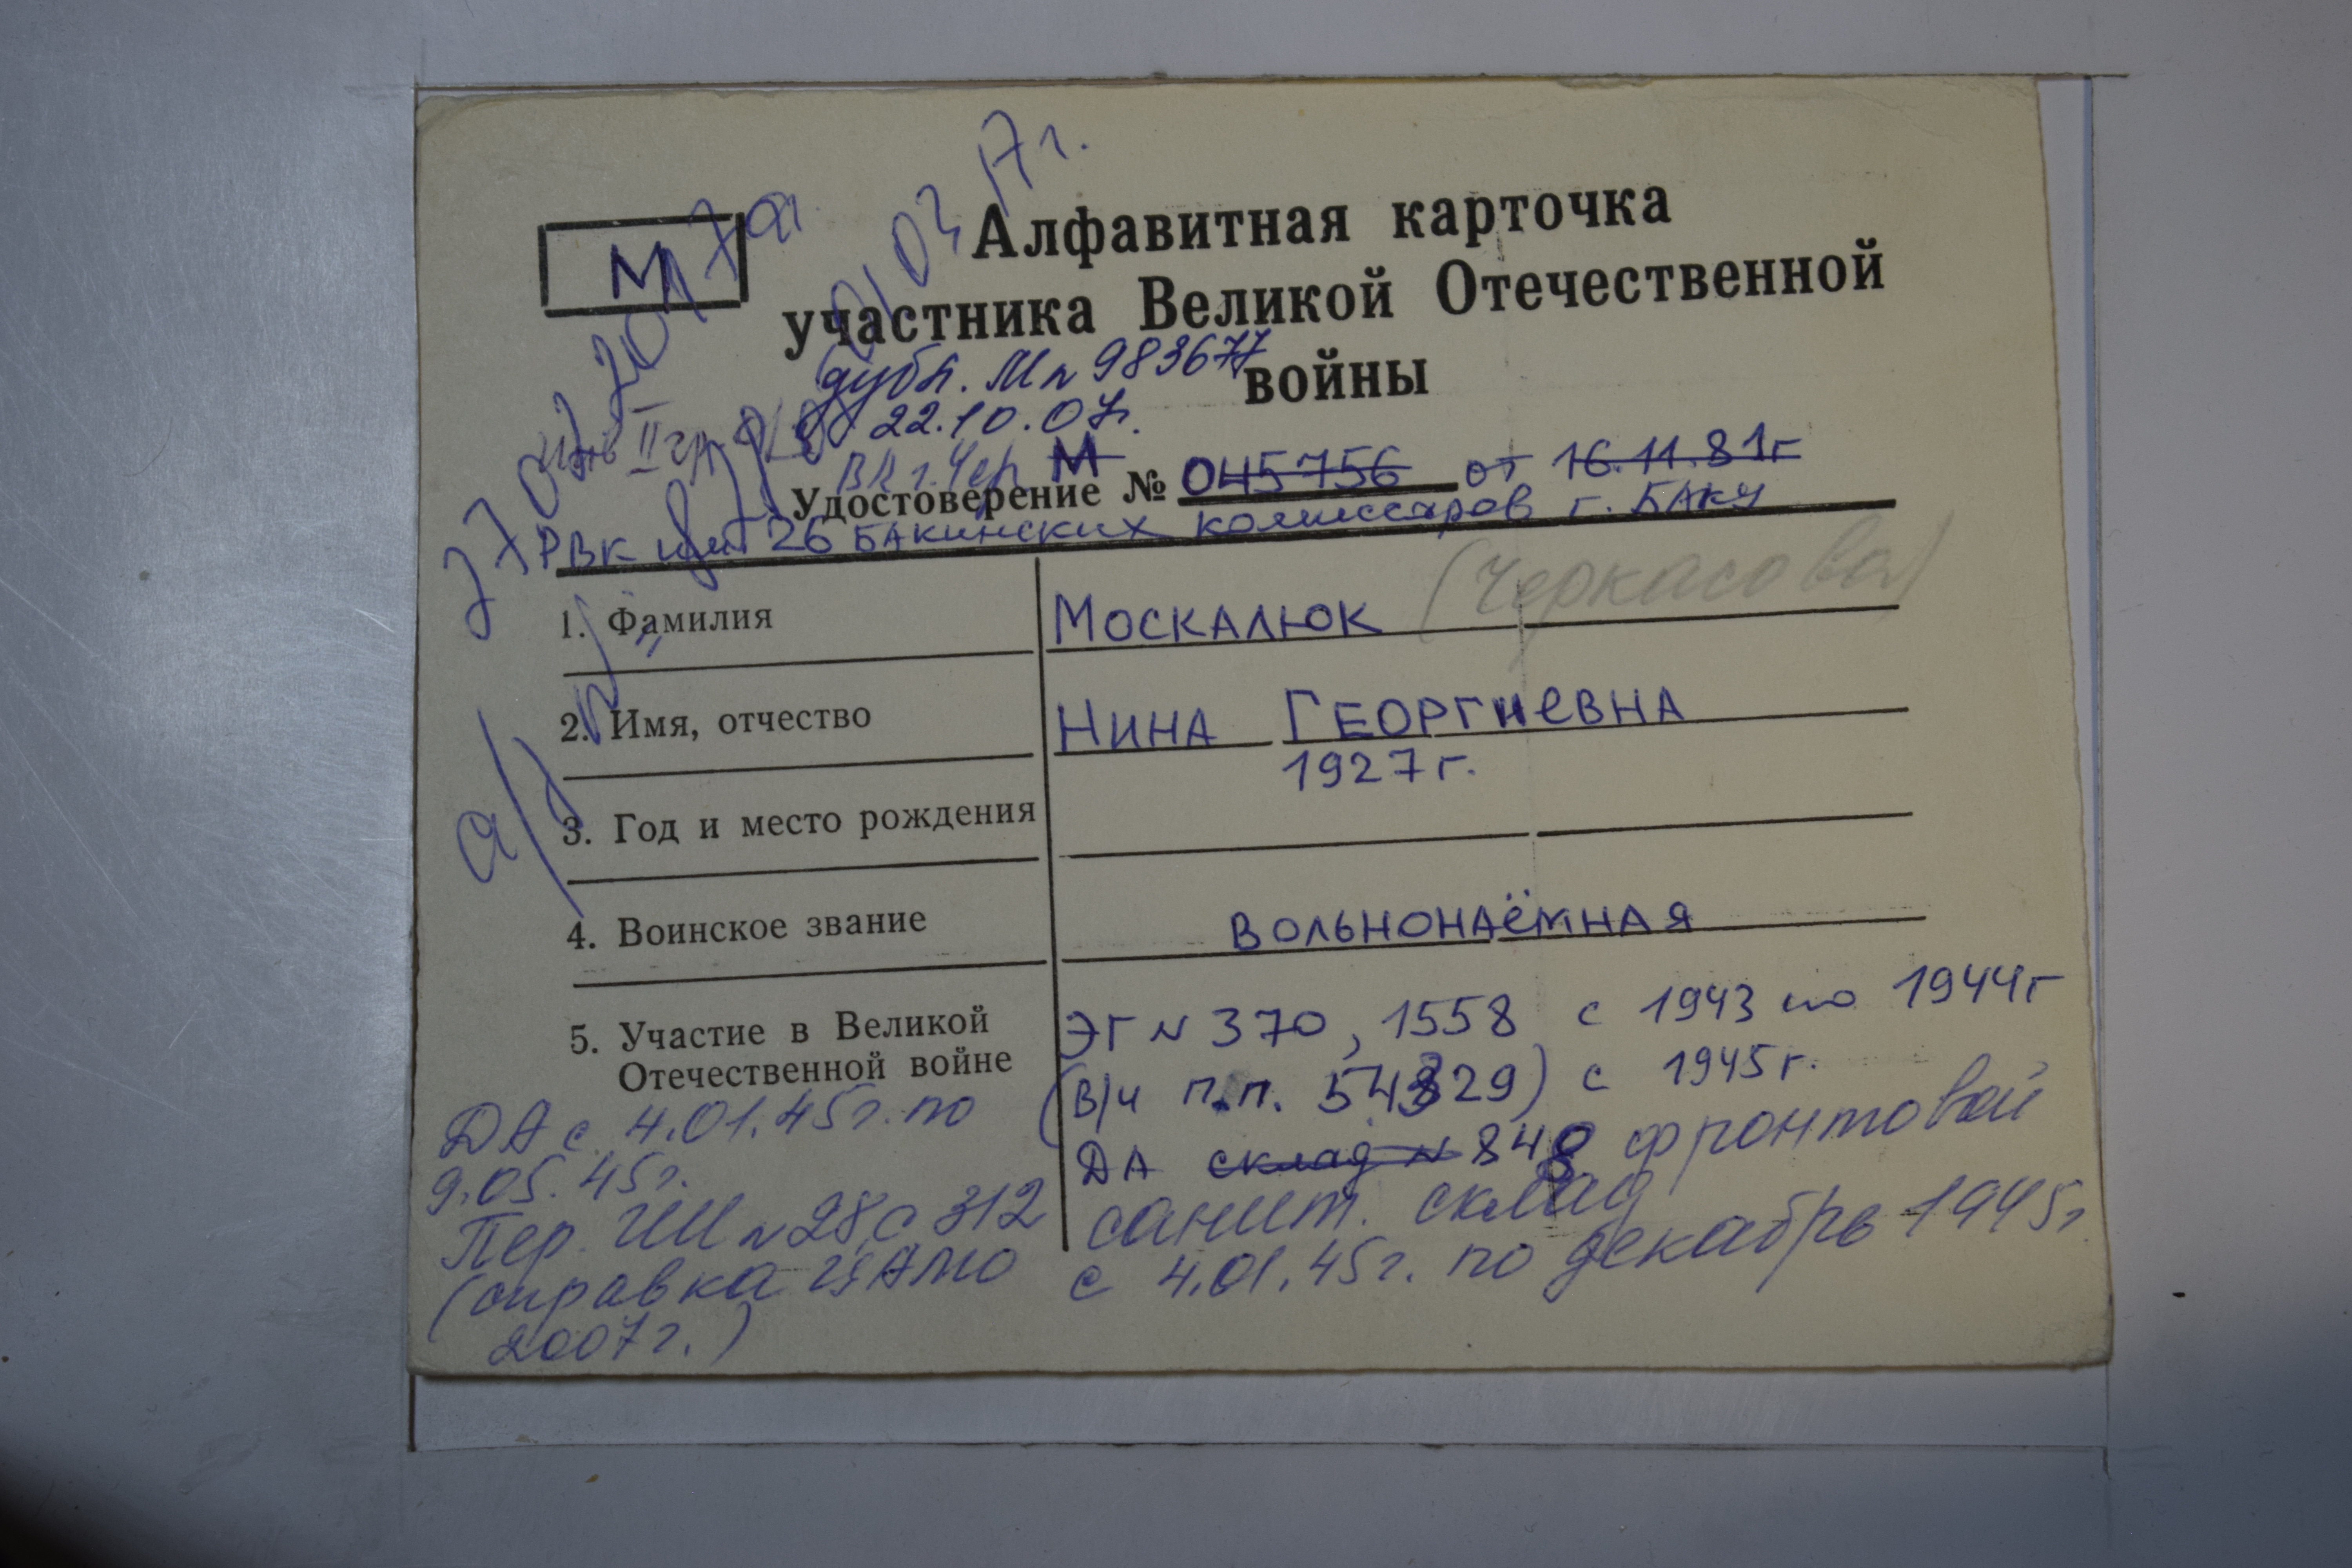 М
Алфавитная карточка
участника Великой Отечественной
войны
дубл. М № 983677
22.10.07г.
инв II гр.
М
Удостоверение № 045756 от 16.11.81г
РВК им 26 Бакинских комиссаров г. Баку
1. Фамилия
Москалюк (Черкасова)
2. Имя, отчество
Нина Георгиевна
1927г.
3. Год и место рождения
4. Воинское звание
вольнонаёмная
5. Участие в Великой
Отечественной войне
ЭГ № 370, 1558 с 1943 по 1944г
(в/ч п.п. 54829) с 1945г.
ДА склад № 848 фронтовой
санит. склад
с 4.01.45г. по декабрь 1945г
ДА с 4.01.45г. по
9.05.45г.
Пер. ГШ № 28, с 312
(справка ЦАМО
2007г.)